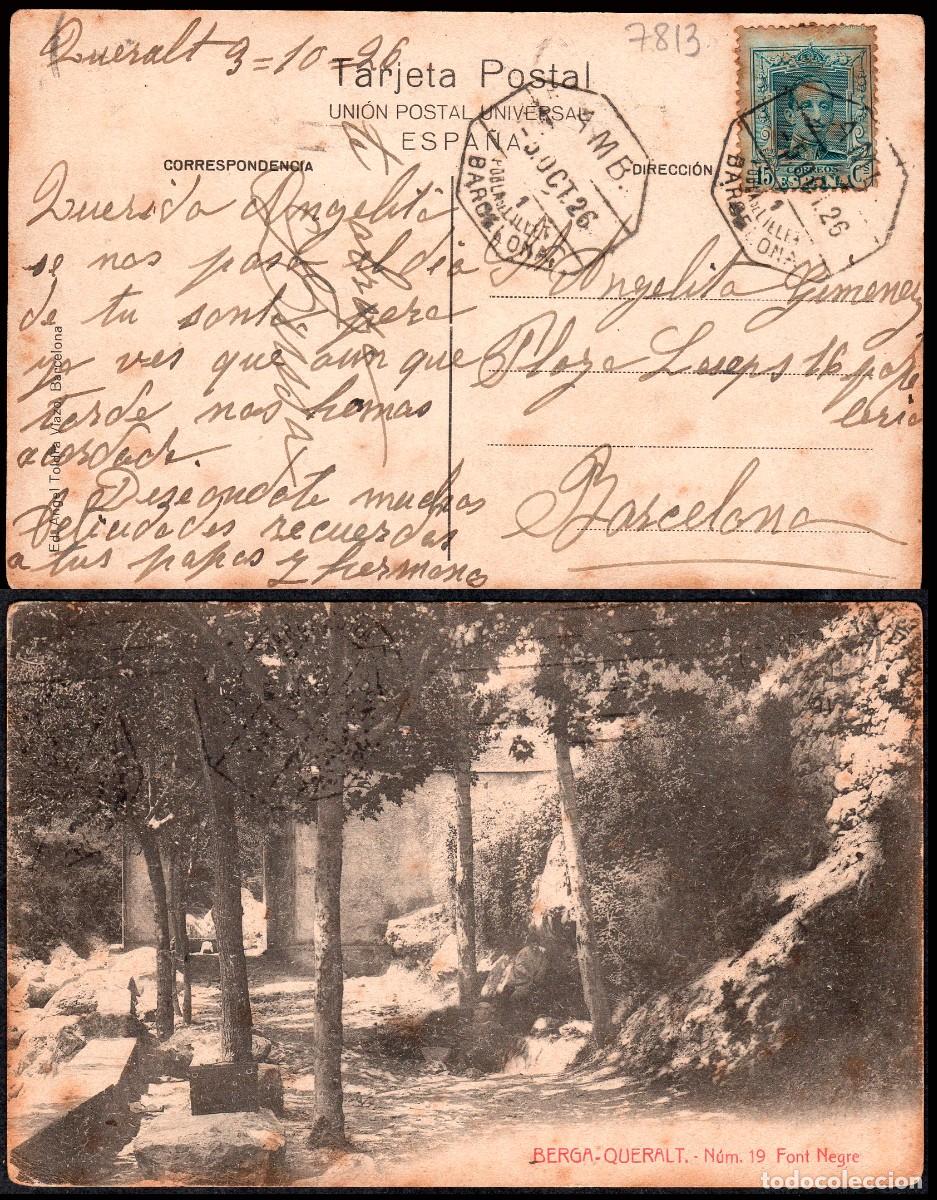 7813
Queralt 3=10=26
Tarjeta Postal
UNIÓN POSTAL UNIVERSAL
ESPAÑA
CORRESPONDENCIA
DIRECCIÓN
AMB.
-3.OCT.26
1
POBLA DE LILLET
BARCELONA
15 CORREOS Cs
ESPAÑA
AMB.
OCT.26
1
POBLA DE LILLET
BARCELONA
Querida Angelita
se nos paso el dia
de tu santo pero
ya ves que aun que
tarde nos hemos
acordado
Deseandote muchas
felicidades recuerdos
a tus papas y hermanos
Angelita Gimenez
Plaza 16
Barcelona
Edt. Angel Toldrá Viazo, Barcelona
BERGA-QUERALT. - Núm. 19 Font Negre
todocoleccion